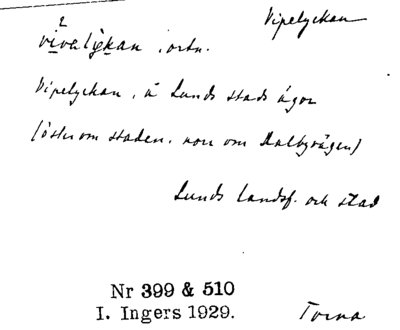 Vipelyckan
vivalykan, ortn.
Vipelyckan, å Lunds stads ägor
(öster om staden, norr om Dalbyvägen)
Lunds landsf. och stad
Nr 399 & 510
I. Ingers 1929.
Torna